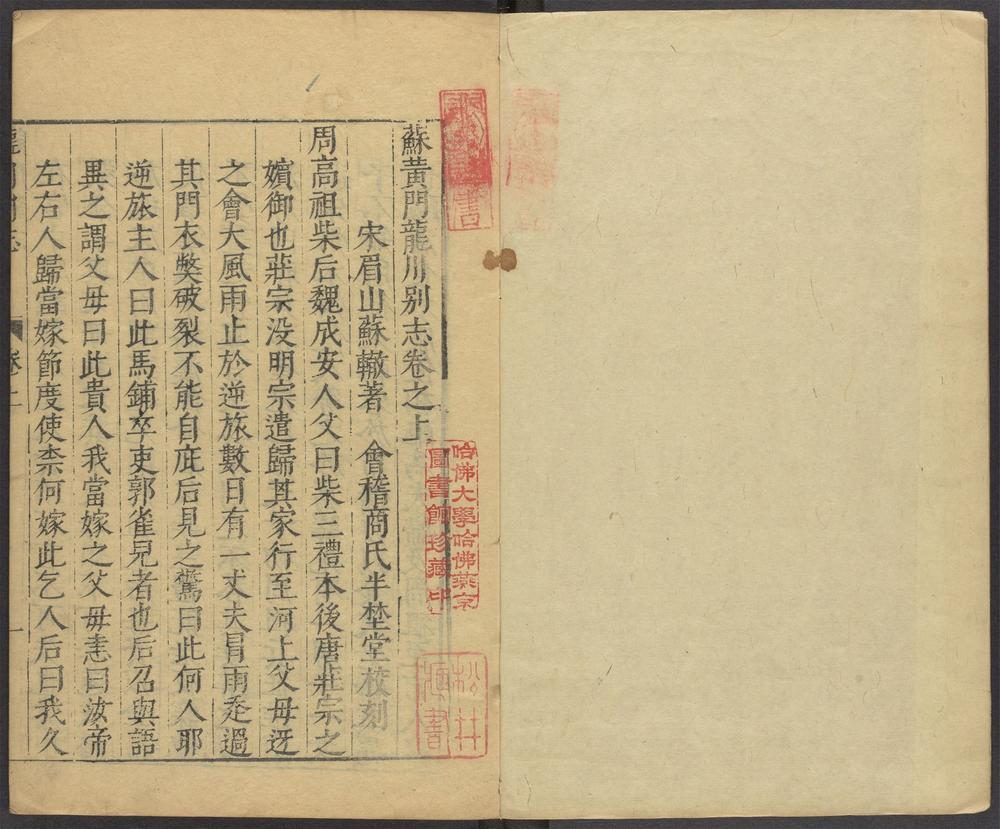 蘇黃門龍川别志卷之上
宋眉山蘇轍著 會稽商氏半埜堂校刻
周高祖柴后魏成安人父曰柴三禮本後唐莊宗之
嬪御也莊宗没明宗遣歸其家行至河上父毋迓
之會大風雨止於逆旅數日有一丈夫冒雨走過
其門衣獘破裂不能自庇后見之驚曰此何人耶
逆旅主人曰此馬鋪卒吏郭雀兒者也后召與語
異之謂父毋曰此貴人我當嫁之父毋恚曰汝帝
左右人歸當嫁節度使柰何嫁此乞人后曰我久
卷上
一
哈佛大學哈佛燕京
圖書館珍藏印
書
松井
書